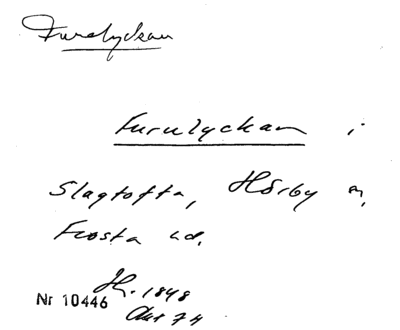 Furulyckan
Furulyckan i
Slagtofta, Hörby sn,
Frosta hd.
Nr 10446 1848
Akt 74